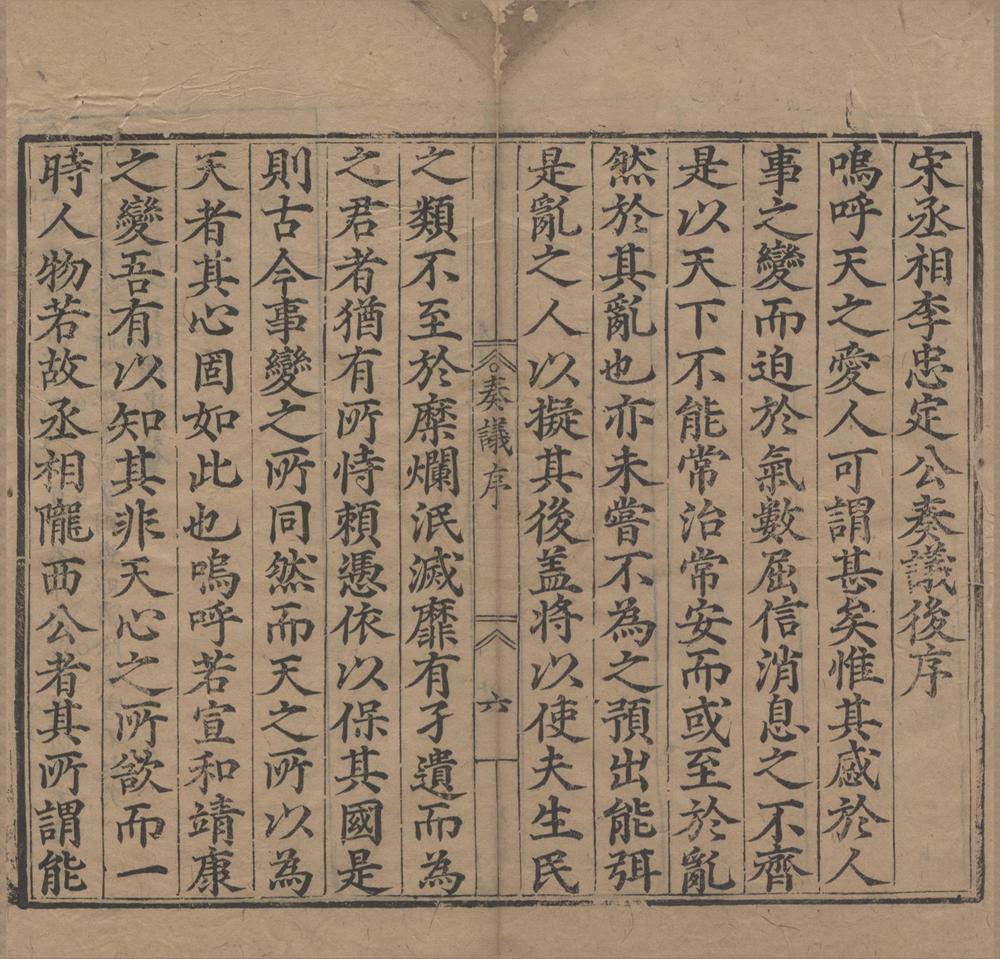 宋丞相李忠定公奏議後序
嗚呼天之愛人可謂甚矣惟其感於人
事之變而迫於氣數屈信消息之不齊
是以天下不能常治常安而或至於亂
然於其亂也亦未嘗不為之預出能弭
是亂之人以擬其後盖將以使夫生民
奏議序
六
之類不至於糜爛泯滅靡有孑遺而為
之君者猶有所恃頼憑依以保其國是
則古今事變之所同然而天之所以為
天者其心固如此也嗚呼若宣和靖康
之變吾有以知其非天心之所欲而一
時人物若故丞相隴西公者其所謂能